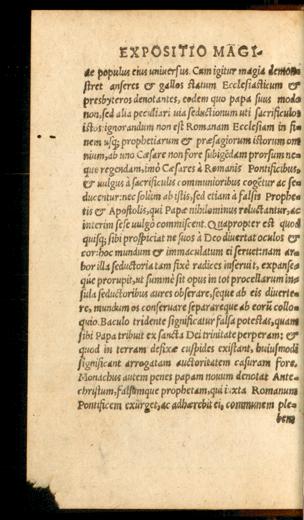 EXPOSITIO MAGI-
ae populus eius universus. Cum igitur magia demon-
stret anseres & gallos statum Ecclesiasticum &
presbyteros denotantes, eodem quo papa suus modo
non, sed alia peculiari via seductionum uti sacrificulos
istos: ignorandum non est Romanam Ecclesiam in fi-
nem usq; prophetiarum & praesagiorum istorum om
nium, ab uno Caesare non fore subigēdam prorsum ne-
que regendam, imò Caesares à Romanis Pontificibus,
& vulgus à sacrificulis communioribus cogētur ac se-
ducentur: nec solùm ab istis, sed etiam à falsis Prophe-
tis & Apostolis, qui Papae nihilominus reluctantur, ac
interim sese vulgò commiscent. Quapropter est quod
quisq; sibi prospiciat ne suos à Deo divertat oculos &
cor: hoc mundum & immaculatum ei servet: nam ar-
bor illa seductoria tam fixè radices inseruit, expanse-
que prorupit, ut summè sit opus in tot procellarum in-
sula seductoribus aures obserare, seque ab eis diverte-
re, mundum os conservare separareque ab eorū collo-
quio. Baculo tridente significatur falsa potestas, quam
sibi Papa tribuit ex sancta Dei trinitate perperam; &
quod in terram defixae cuspides existant, huiusmodi
significant arrogatam auctoritatem casuram fore.
Monachus autem penes papam novum denotat Ante-
christum, falsumque prophetam, qui iuxta Romanum
Pontificem exurget, ac adhaerebit ei, communem ple-
bem